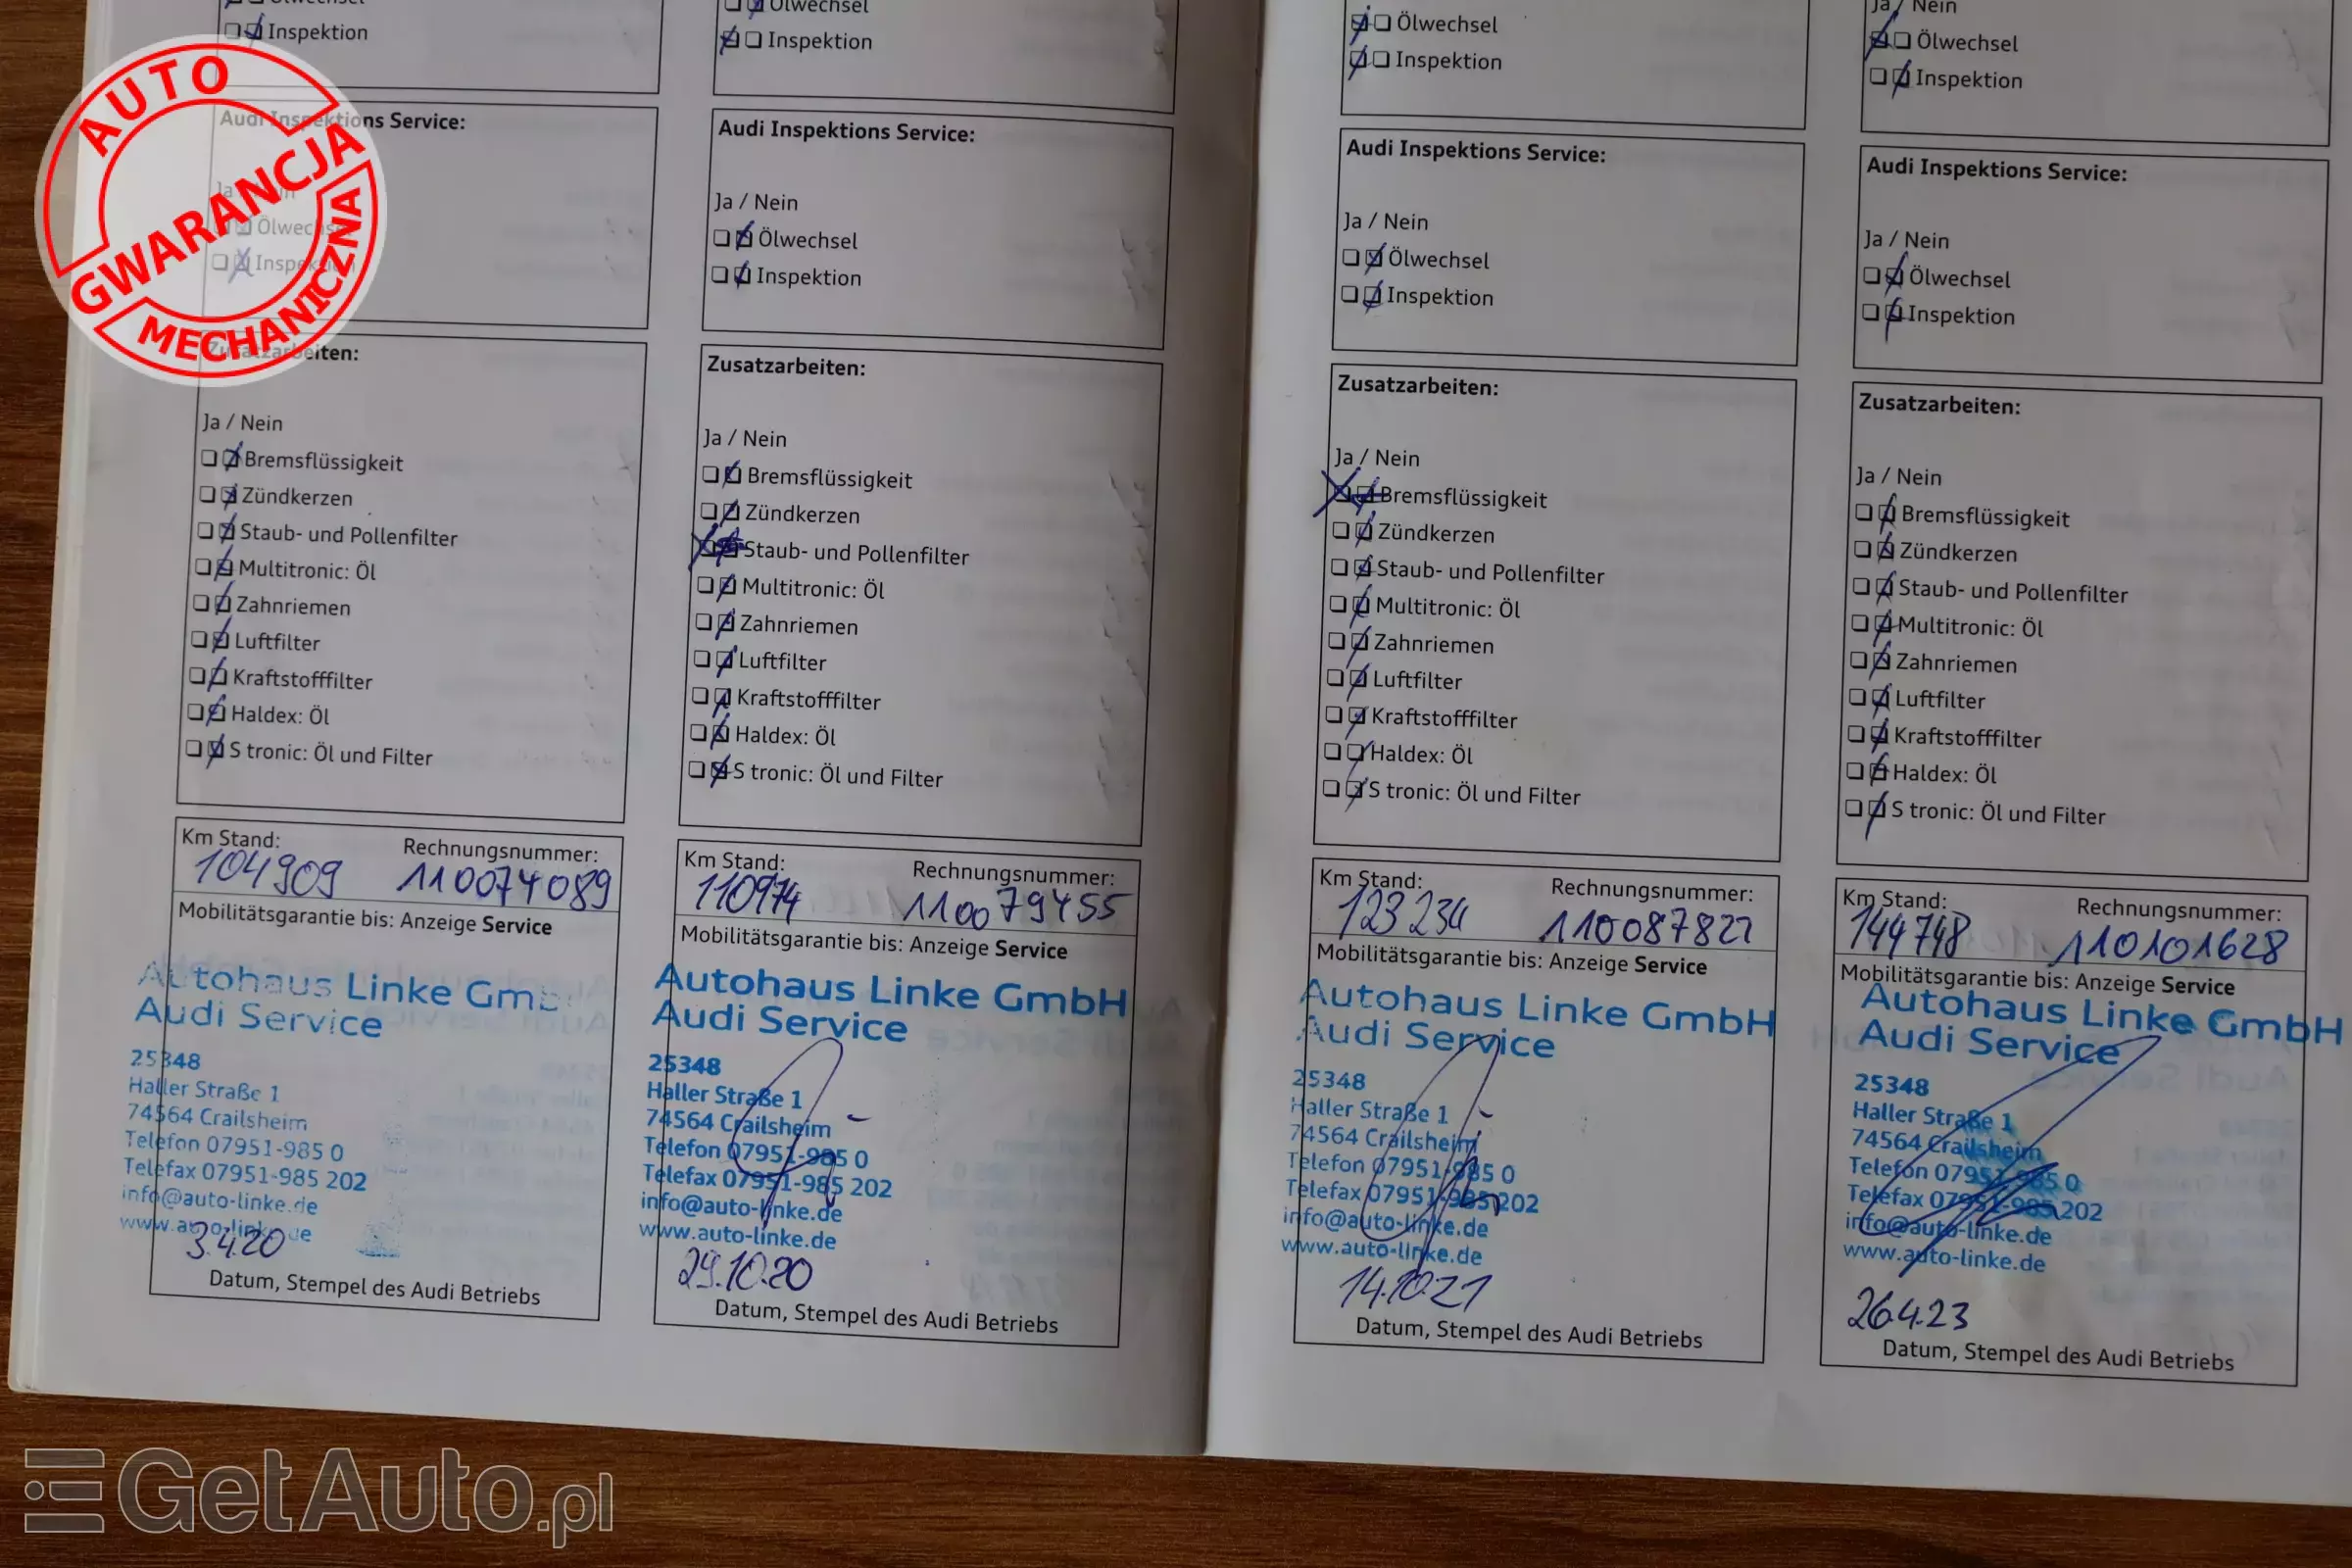 Ölwechsel
Inspektion
Audi Inspektions Service:
Ja / Nein
Ölwechsel
Inspektion
Zusatzarbeiten:
Ja / Nein
Bremsflüssigkeit
Zündkerzen
Staub- und Pollenfilter
Multitronic: Öl
Zahnriemen
Luftfilter
Kraftstofffilter
Haldex: Öl
S tronic: Öl und Filter
Km Stand: Rechnungsnummer:
104909 110074089
Mobilitätsgarantie bis: Anzeige Service
Autohaus Linke Gmb
Audi Service
25348
Haller Straße 1
74564 Crailsheim
Telefon 07951-985 0
Telefax 07951-985 202
info@auto-linke.de
www.auto-linke.de
3.4.20
Datum, Stempel des Audi Betriebs
Ölwechsel
Inspektion
Audi Inspektions Service:
Ja / Nein
Ölwechsel
Inspektion
Zusatzarbeiten:
Ja / Nein
Bremsflüssigkeit
Zündkerzen
Staub- und Pollenfilter
Multitronic: Öl
Zahnriemen
Luftfilter
Kraftstofffilter
Haldex: Öl
S tronic: Öl und Filter
Km Stand: Rechnungsnummer:
110974 110079455
Mobilitätsgarantie bis: Anzeige Service
Autohaus Linke GmbH
Audi Service
25348
Haller Straße 1
74564 Crailsheim
Telefon 07951-985 0
Telefax 07951-985 202
info@auto-linke.de
www.auto-linke.de
29.10.20
Datum, Stempel des Audi Betriebs
Ölwechsel
Inspektion
Audi Inspektions Service:
Ja / Nein
Ölwechsel
Inspektion
Zusatzarbeiten:
Ja / Nein
Bremsflüssigkeit
Zündkerzen
Staub- und Pollenfilter
Multitronic: Öl
Zahnriemen
Luftfilter
Kraftstofffilter
Haldex: Öl
S tronic: Öl und Filter
Km Stand: Rechnungsnummer:
123234 110087822
Mobilitätsgarantie bis: Anzeige Service
Autohaus Linke GmbH
Audi Service
25348
Haller Straße 1
74564 Crailsheim
Telefon 07951-985 0
Telefax 07951-985 202
info@auto-linke.de
www.auto-linke.de
14.10.21
Datum, Stempel des Audi Betriebs
Ja / Nein
Ölwechsel
Inspektion
Audi Inspektions Service:
Ja / Nein
Ölwechsel
Inspektion
Zusatzarbeiten:
Ja / Nein
Bremsflüssigkeit
Zündkerzen
Staub- und Pollenfilter
Multitronic: Öl
Zahnriemen
Luftfilter
Kraftstofffilter
Haldex: Öl
S tronic: Öl und Filter
Km Stand: Rechnungsnummer:
144748 110101628
Mobilitätsgarantie bis: Anzeige Service
Autohaus Linke GmbH
Audi Service
25348
Haller Straße 1
74564 Crailsheim
Telefon 07951-985 0
Telefax 07951-985 202
info@auto-linke.de
www.auto-linke.de
26.4.23
Datum, Stempel des Audi Betriebs
AUTO
GWARANCJA
MECHANICZNA
GetAuto.pl